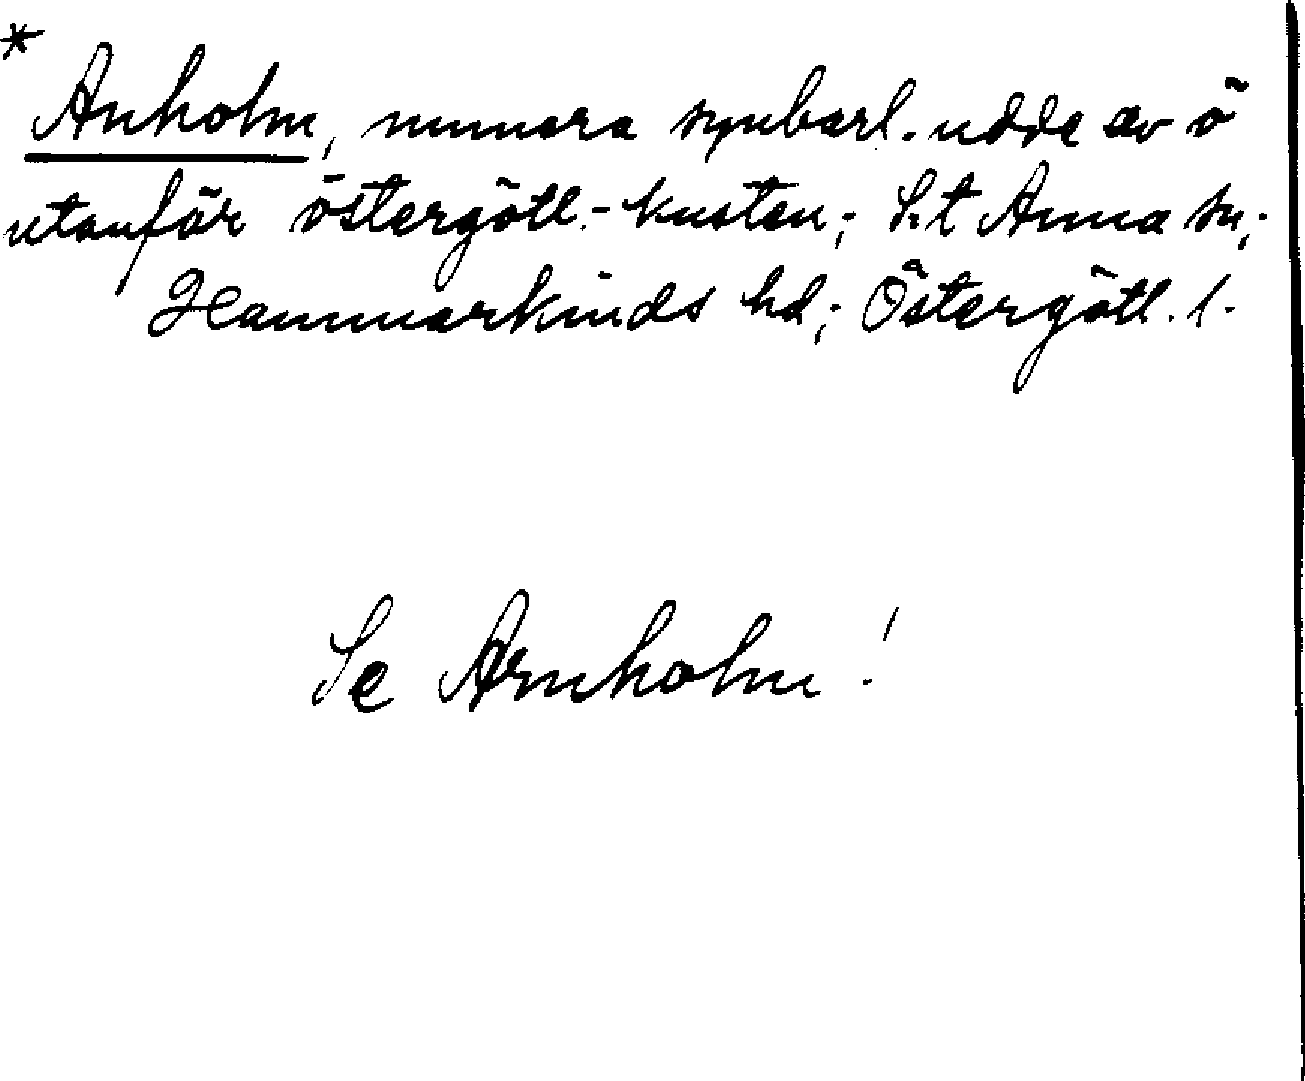 *
Anholm, numera synbarl. udde av ö
utanför östergötl.-kusten; S:t Anna sn;
Hammarkinds hd; Östergötl. l.
Se Arnholm!